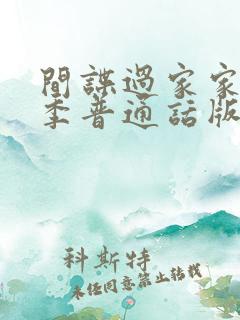 間諜過家家
季普通話版
科斯特
未经同意禁止转载